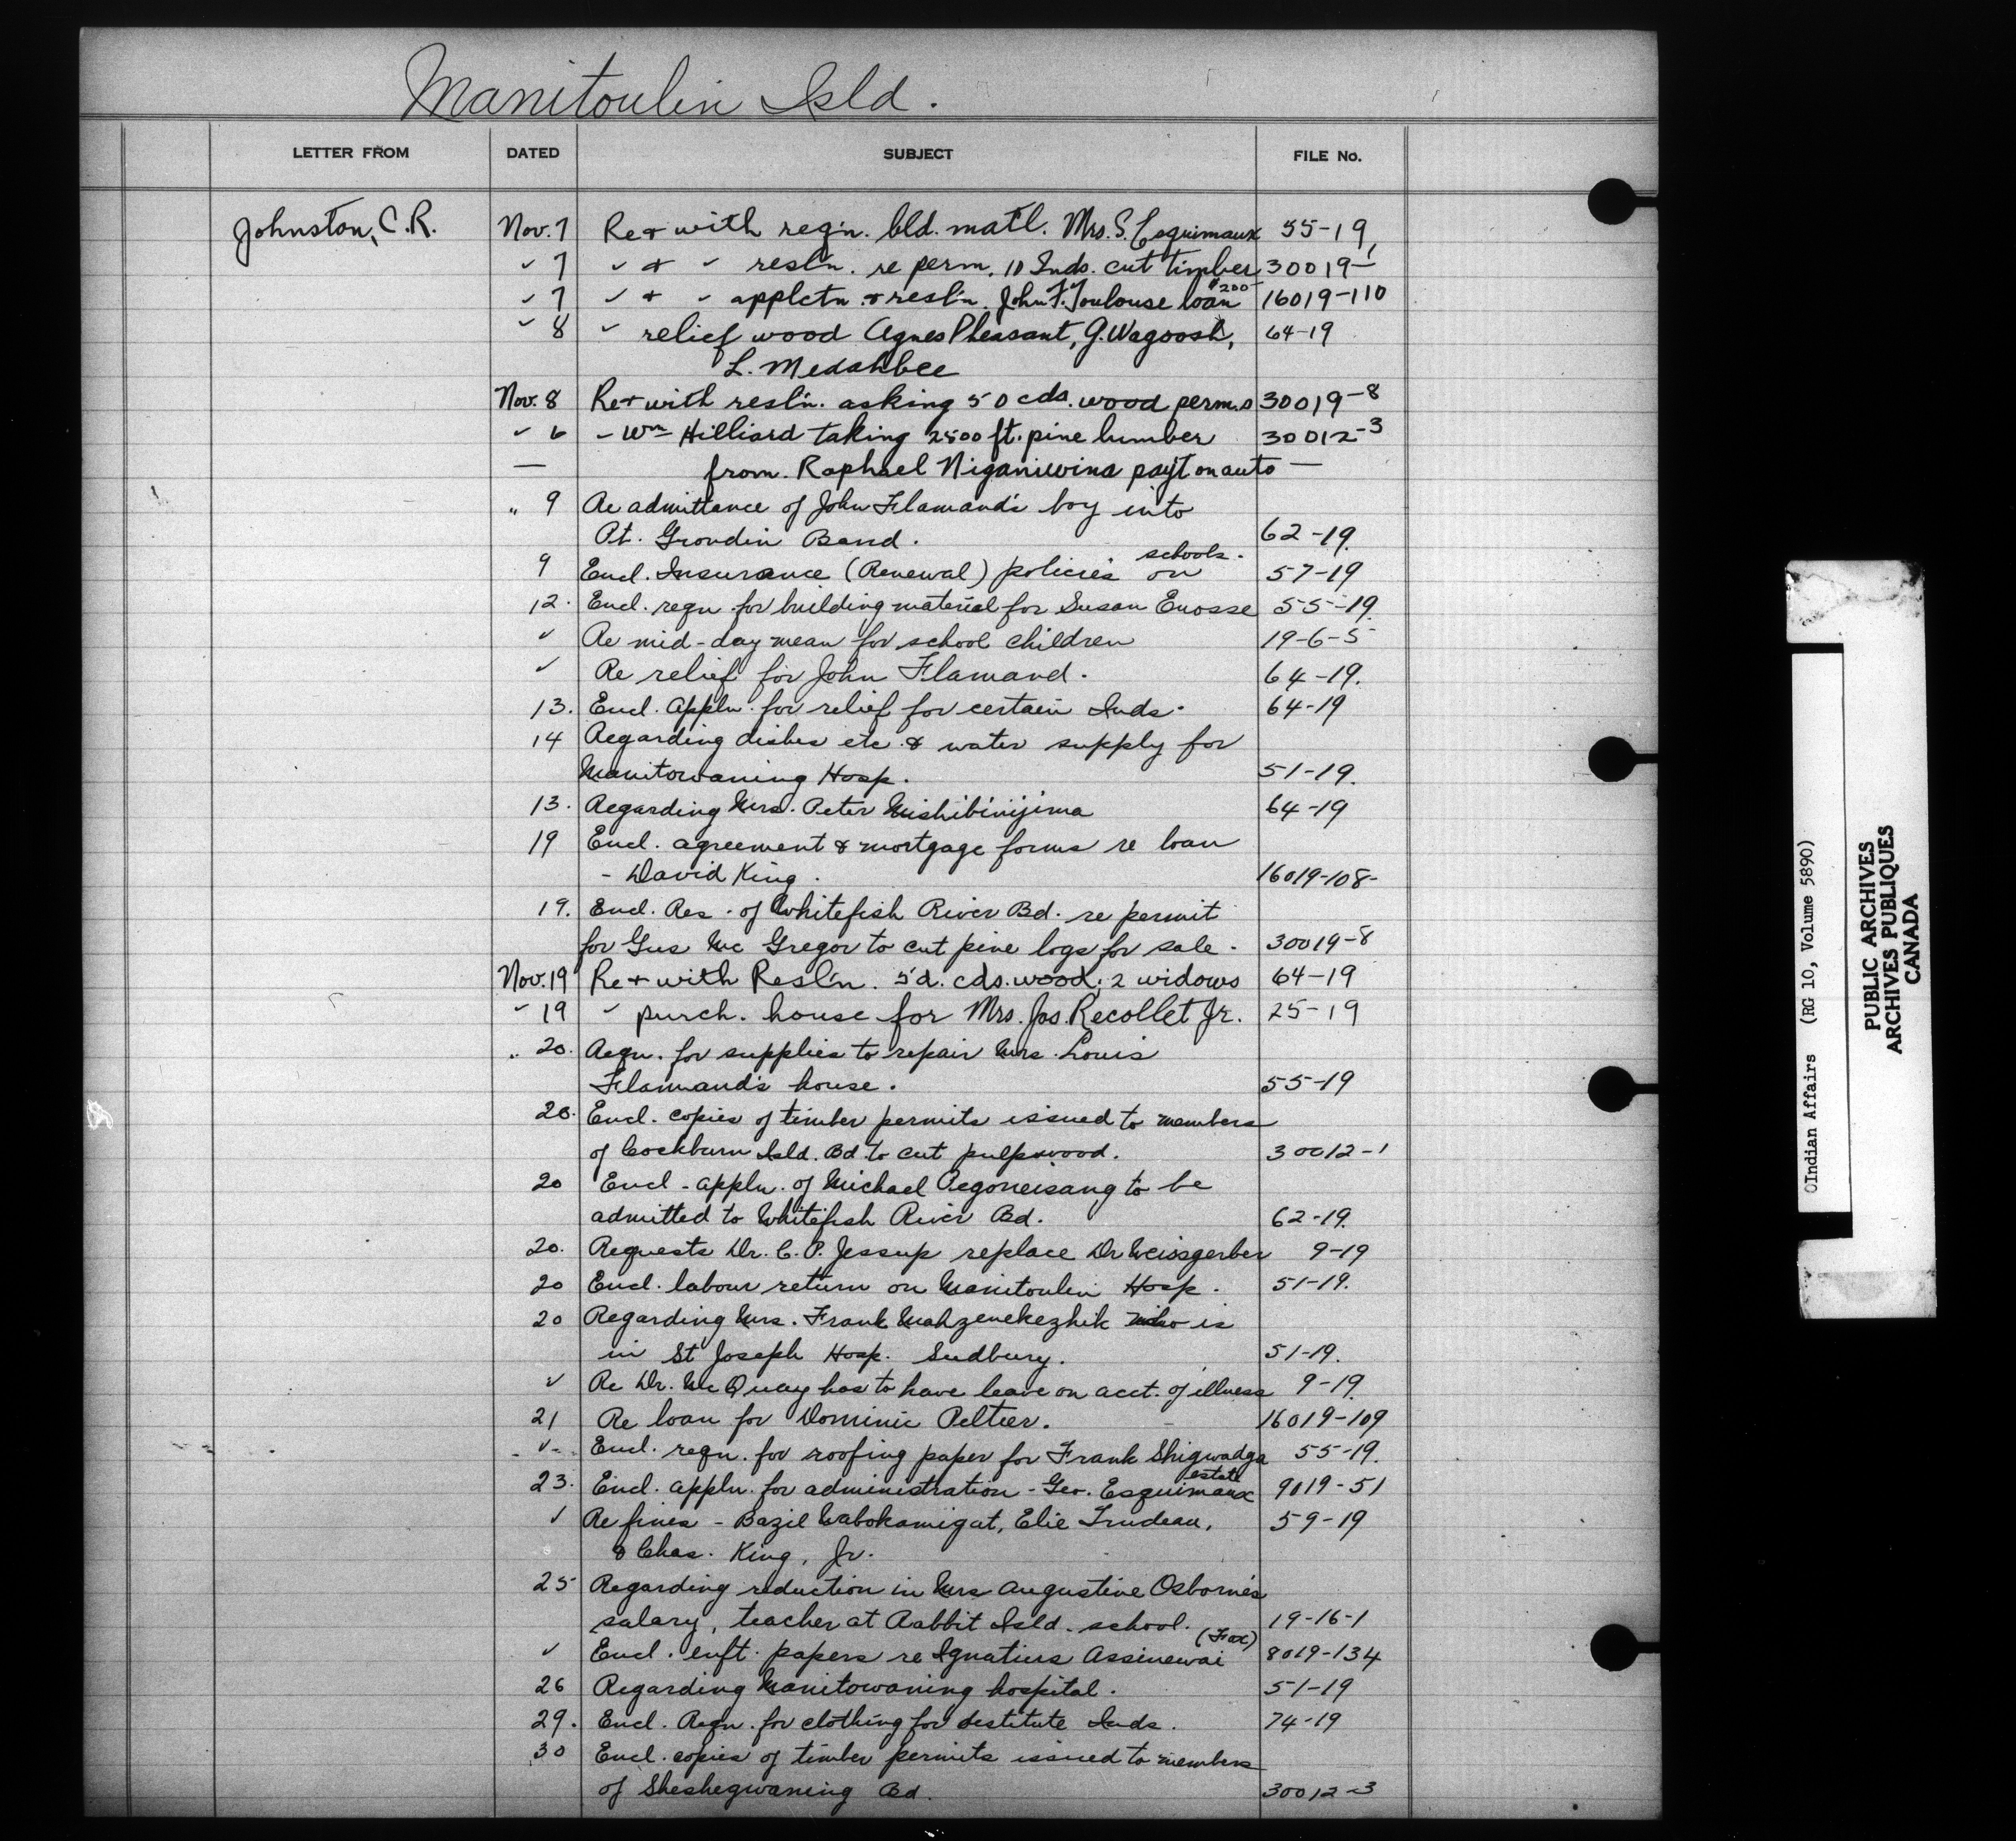 Manitoulin Isld.
LETTER FROM DATED SUBJECT FILE No.
Johnston, C.R. Nov. 7 Re & with reg'n. bld. mat'l. Mrs. S. Esquimaux 55-19
" 7 " & " resl'n. re perm. 10 Inds. cut timber 30019-1
" 7 " & " applctn. & resl'n. John F. Toulouse $200- loan 16019-110
" 8 " relief wood Agnes Pheasant, G. Wagoosh, 64-19
L. Medahbee
Nov. 8 Re & with resl'n. asking 50 cds. wood perm.s 30019-8
" 6 - Wm Hilliard taking 2500 ft. pine lumber 30012-3
— from. Raphael Niganiwina pay't on auto —
" 9 Re admittance of John Flamand's boy into
Pt. Grondin Band. 62-19.
9 Encl. Insurance (Renewal) policies on schools. 57-19
12. Encl. reqn for building material for Susan Enosse 55-19.
" Re mid-day mean for school children 19-6-5
" Re relief for John Flamand. 64-19.
13. Encl. appln. for relief for certain Inds. 64-19
14 Regarding dishes etc. & water supply for
Manitowaning Hosp. 51-19.
13. Regarding Mrs. Peter Mishibinijima 64-19
19 Encl. agreement & mortgage forms re loan
- David King. 16019-108-
19. Encl. Res. of Whitefish River Bd. re permit
for Gus Mc Gregor to cut pine logs for sale. 30019-8
Nov. 19 Re & with Resl'n. 5 d. cds. wood; 2 widows 64-19
" 19 " purch. house for Mrs. Jos. Recollet Jr. 25-19
" 20. Reqn. for supplies to repair Mrs. Louis
Flammand's house. 55-19
20. Encl. copies of timber permits issued to members
of Cockburn Isld. Bd. to cut pulpwood. 30012-1
20 Encl - appln. of Michael Pegoneisang to be
admitted to Whitefish River Bd. 62-19.
20. Requests Dr. C. P. Jessup replace Dr Weissgerber 9-19
20 Encl. labour return on Manitoulin Hosp. 51-19.
20 Regarding Mrs. Frank Mahzenekezhik who is
in St Joseph Hosp. Sudbury. 51-19.
" Re Dr. Mc Quay has to have leave on acct. of illness 9-19.
21 Re loan for Dominic Peltier. 16019-109
" Encl. reqn. for roofing paper for Frank Shigwadga 55-19.
23. Encl. appln. for administration - Geo. Esquimaux estate 9019-51
" Re fines - Bazil Wabokamigat, Elie Trudeau, 59-19
& Chas. King, Jr.
25 Regarding reduction in Mrs Augustine Osborne's
salary, teacher at Rabbit Isld. school. 19-16-1
" Encl. enft. papers re Ignatius Assinewai (Fox) 8019-134
26 Regarding Manitowaning hospital. 51-19
29. Encl. Reqn. for clothing for destitute Inds. 74-19
30 Encl. copies of timber permits issued to members
of Sheshegwaning Bd. 30012-3
©Indian Affairs (RG 10, Volume 5890)
PUBLIC ARCHIVES
ARCHIVES PUBLIQUES
CANADA